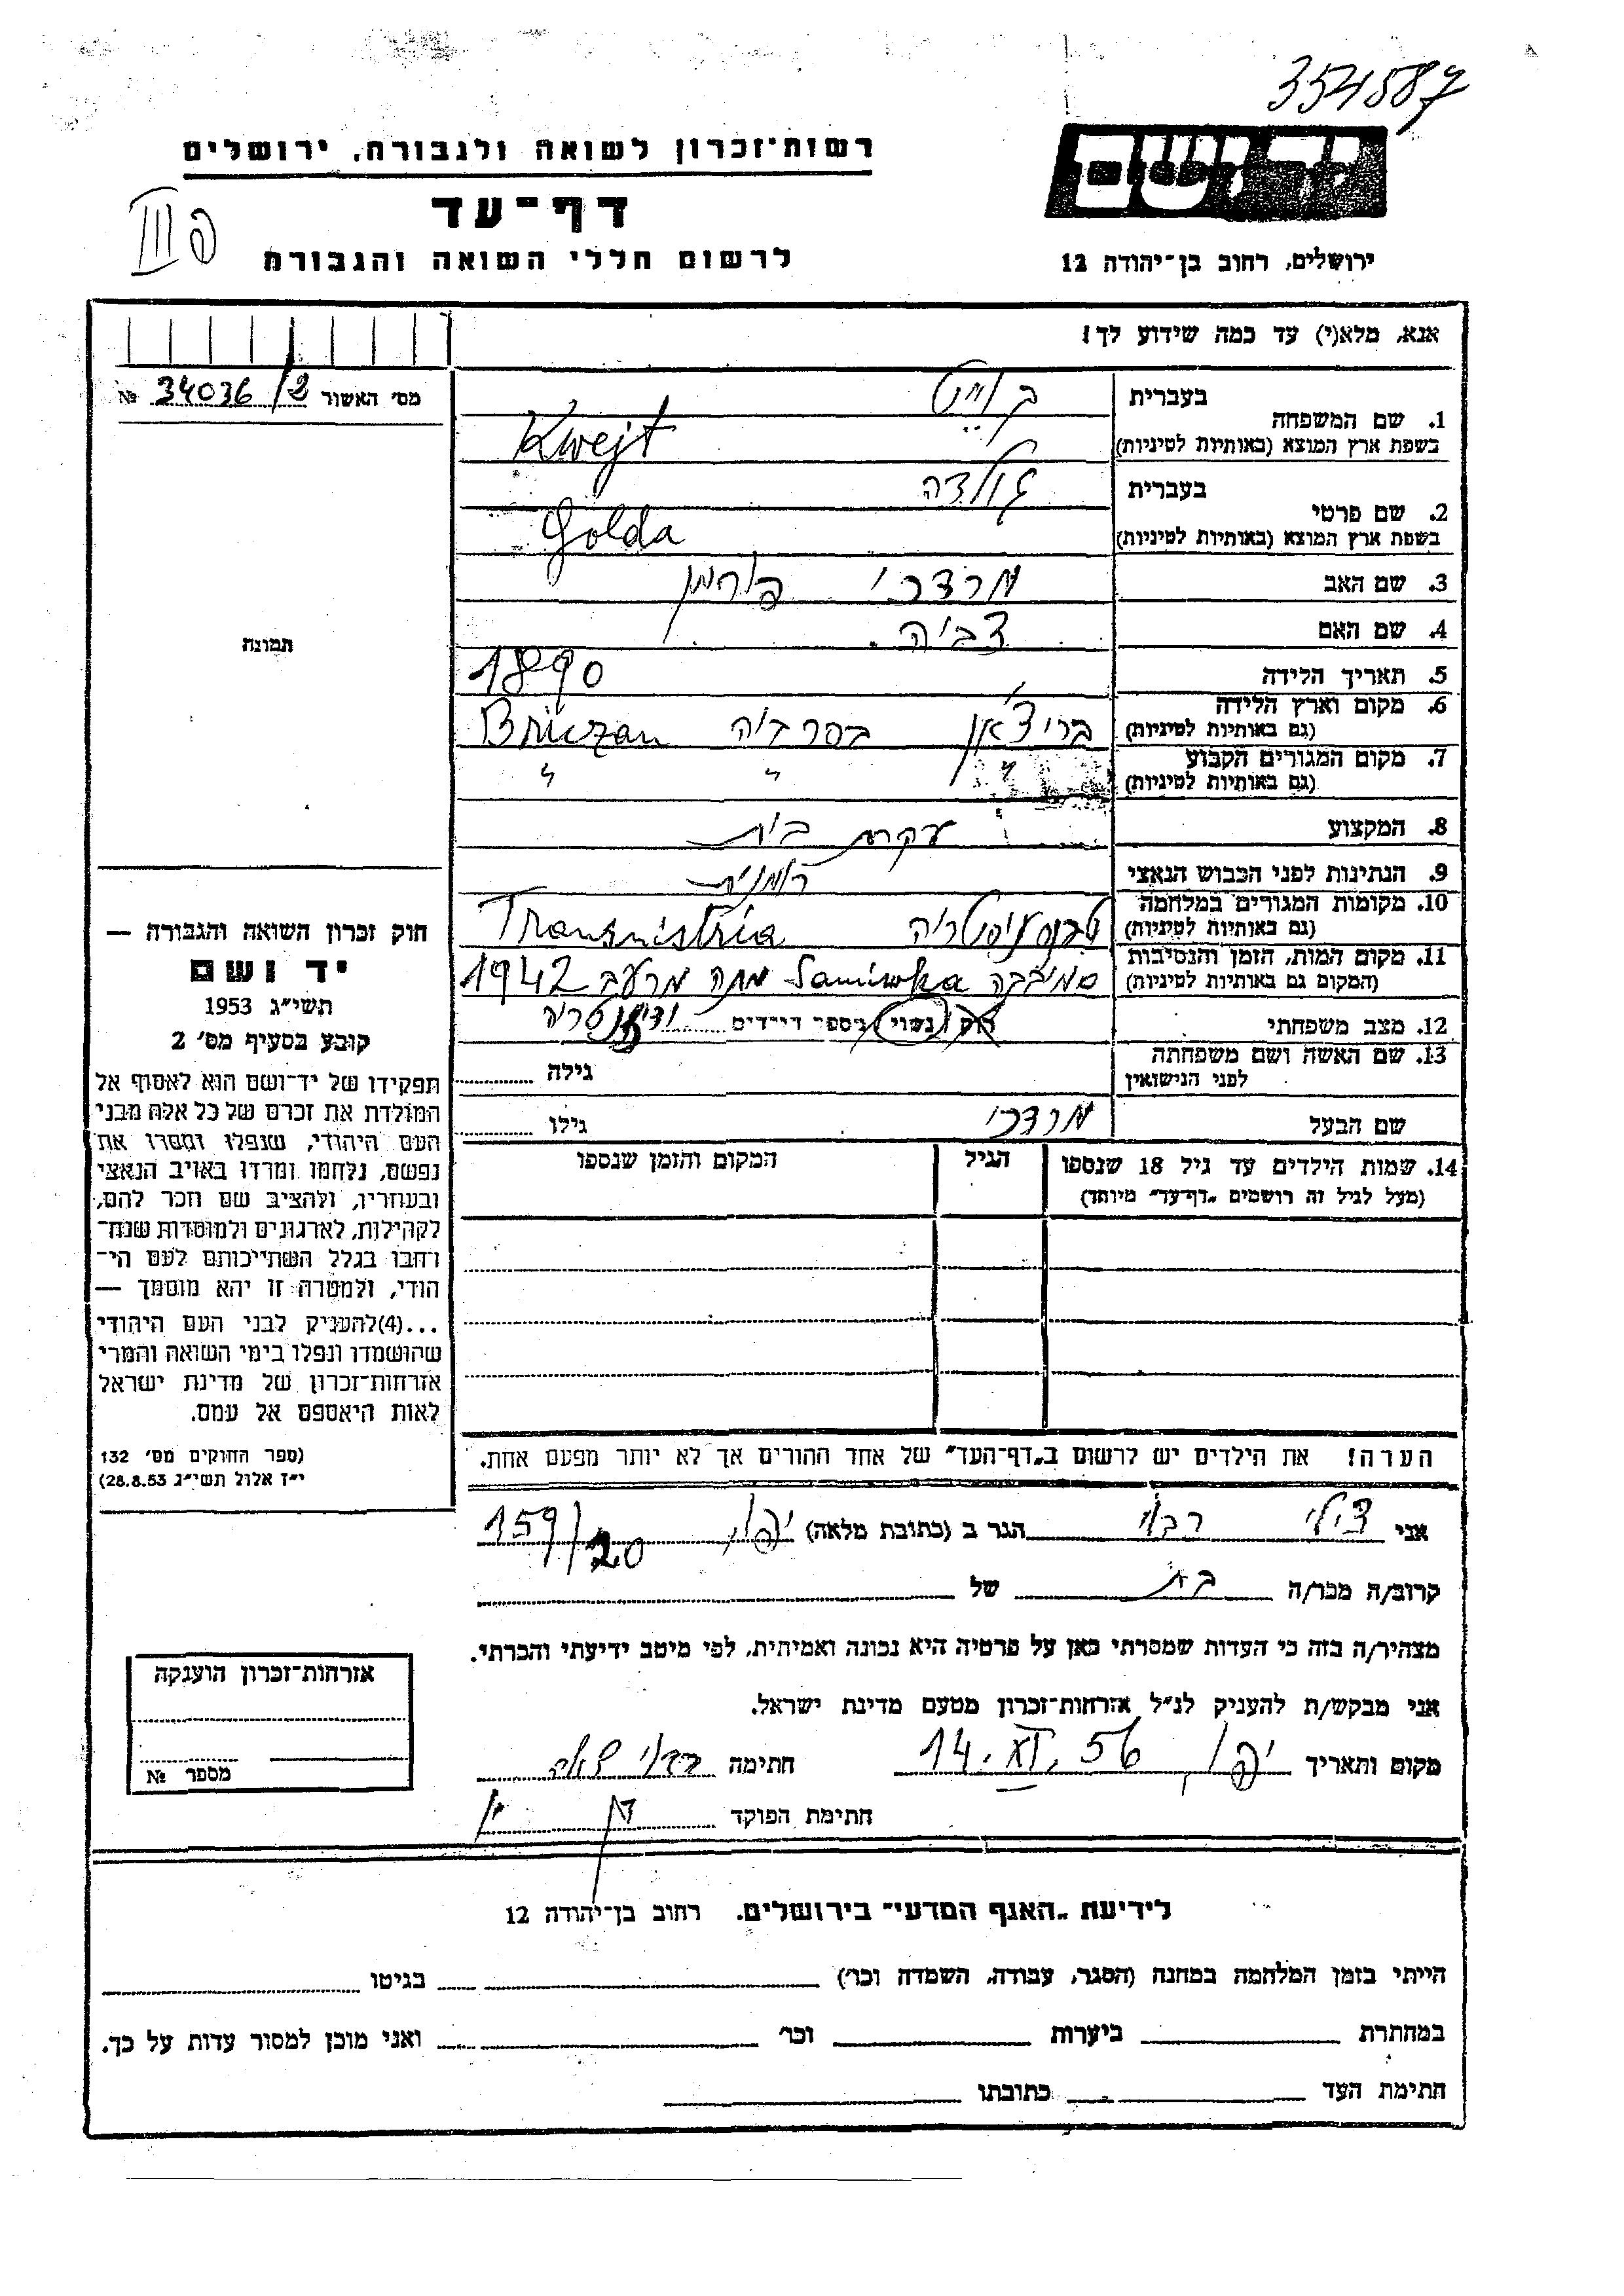 3541587
רשות־זכרון לשואה ולגבורה, ירושלים
דף־עד
לרשום חללי השואה והגבורה
פ III
יד ושם
ירושלים, רחוב בן־יהודה 12
אנא, מלא(י) עד כמה שידוע לך!
מס׳ האשור 34036/2 №
1. שם המשפחה
בעברית קווייט
בשפת ארץ המוצא (באותיות לטיניות) Kwejt
2. שם פרטי
בעברית גולדה
בשפת ארץ המוצא (באותיות לטיניות) Golda
3. שם האב מרדכי פורמן
4. שם האם צביה
תמונה
5. תאריך הלידה 1890
6. מקום וארץ הלידה בריצ׳אן בסרביה Briczan
(גם באותיות לטיניות)
7. מקום המגורים הקבוע " " "
(גם באותיות לטיניות)
8. המקצוע עקרת בית
9. הנתינות לפני הכבוש הנאצי רומנית
10. מקומות המגורים במלחמה טרנסניסטריה Transnistria
(גם באותיות לטיניות)
11. מקום המות, הזמן והנסיבות 1942 מתה מרעב Samiowka
(המקום גם באותיות לטיניות)
12. מצב משפחתי רוק / נשוי / מספר הילדים
13. שם האשה ושם משפחתה גילה
לפני הנישואין
שם הבעל מרדכי גילו
14. שמות הילדים עד גיל 18 שנספו הגיל המקום והזמן שנספו
(מעל לגיל זה רושמים „דף־עד” מיוחד)
חוק זכרון השואה והגבורה —
יד ושם
תשי״ג 1953
קובע בסעיף מס׳ 2
תפקידו של יד־ושם הוא לאסוף אל
המולדת את זכרם של כל אלה מבני
העם היהודי, שנפלו ומסרו את
נפשם, נלחמו ומרדו באויב הנאצי
ובעוזריו, ולהציב שם וזכר להם,
לקהילות, לארגונים ולמוסדות שנח־
רחבו בגלל השתייכותם לעם הי־
הודי, ולמטרה זו יהא מוסמך —
...(4)להעניק לבני העם היהודי
שהושמדו ונפלו בימי השואה והמרי
אזרחות־זכרון של מדינת ישראל
לאות היאספם אל עמם.
(ספר החוקים מס׳ 132
י״ז אלול תשי״ג 28.8.53)
הערה! את הילדים יש לרשום ב„דף־העד” של אחד ההורים אך לא יותר מפעם אחת.
אני צילי הגר ב (כתובת מלאה) יפו, 159/20
קרוב/ה מכר/ה בת של
מצהיר/ה בזה כי העדות שמסרתי כאן על פרטיה היא נכונה ואמיתית, לפי מיטב ידיעתי והכרתי.
אני מבקש/ת להעניק לנ״ל אזרחות־זכרון מטעם מדינת ישראל.
מקום ותאריך יפו, 14.XI.56 חתימה
חתימת הפוקד
אזרחות־זכרון הוענקה
מספר №
לידיעת „האגף המדעי” בירושלים. רחוב בן־יהודה 12
הייתי בזמן המלחמה במחנה (הסגר, עבודה, השמדה וכו׳) בגיטו
במחתרת ביערות וכו׳ ואני מוכן למסור עדות על כך.
חתימת העד כתובתו